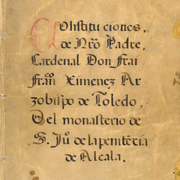 Constituciones,
de Nrō Padre,
Cardenal Don Frai
Franº Ximenez Ar
zobispo de Toledo,
Del monasterio de
S. Juº de la penitēcia
de Alcala.